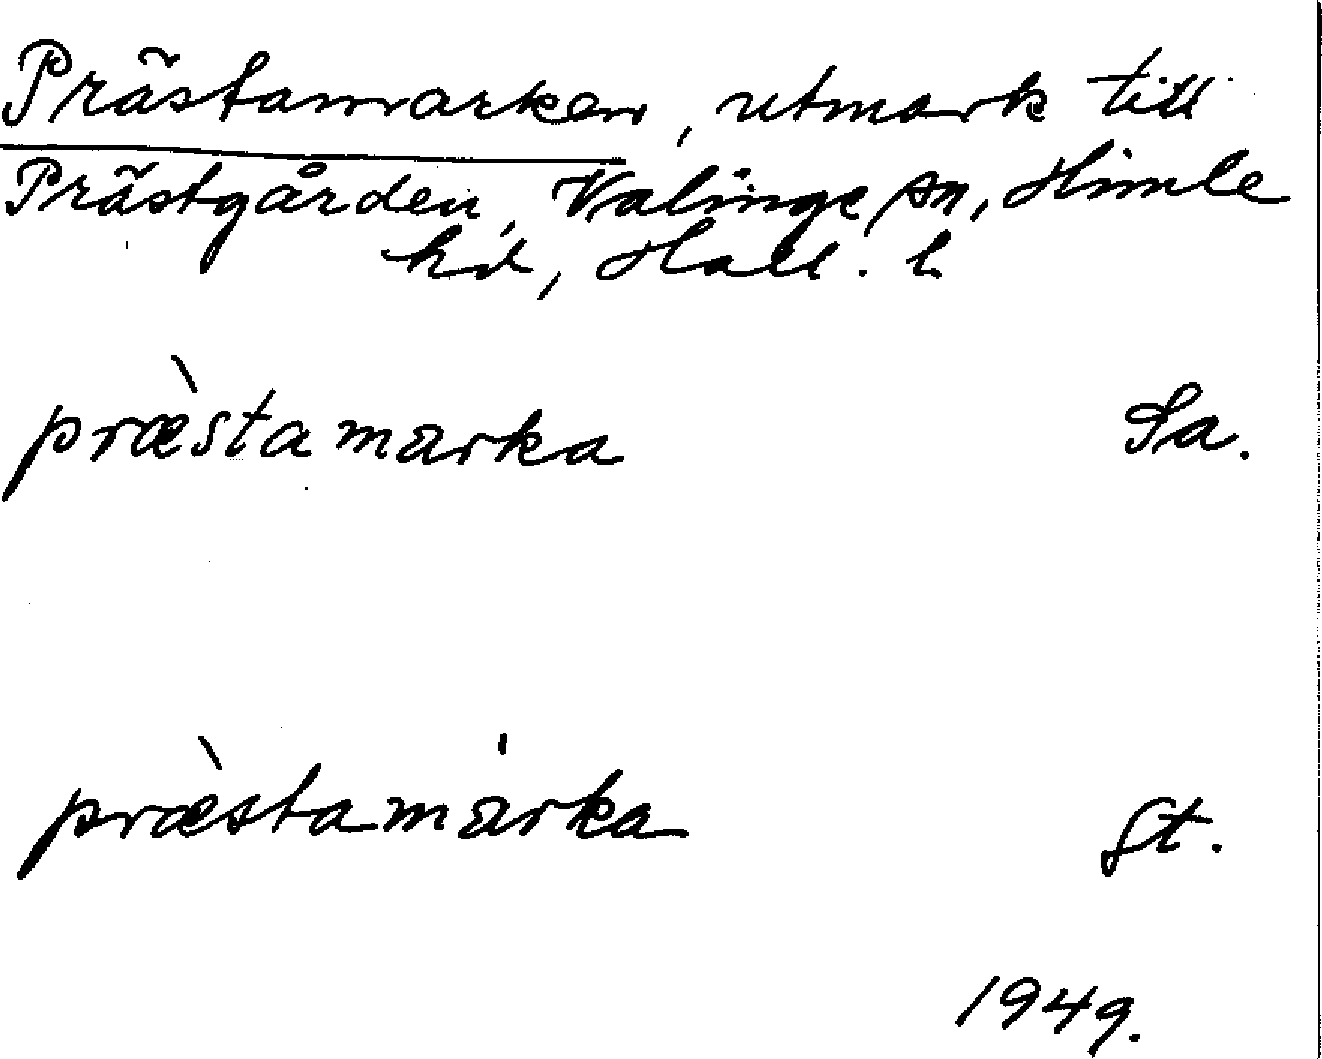 Prästamarken, utmark till
Prästgården, Valinge sn, Himle
hd, Hall. l.
præ̀stamarka Sa.
præ̀stamar̍ka St.
1949.